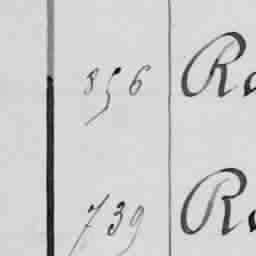 856 Ro
739 Ro